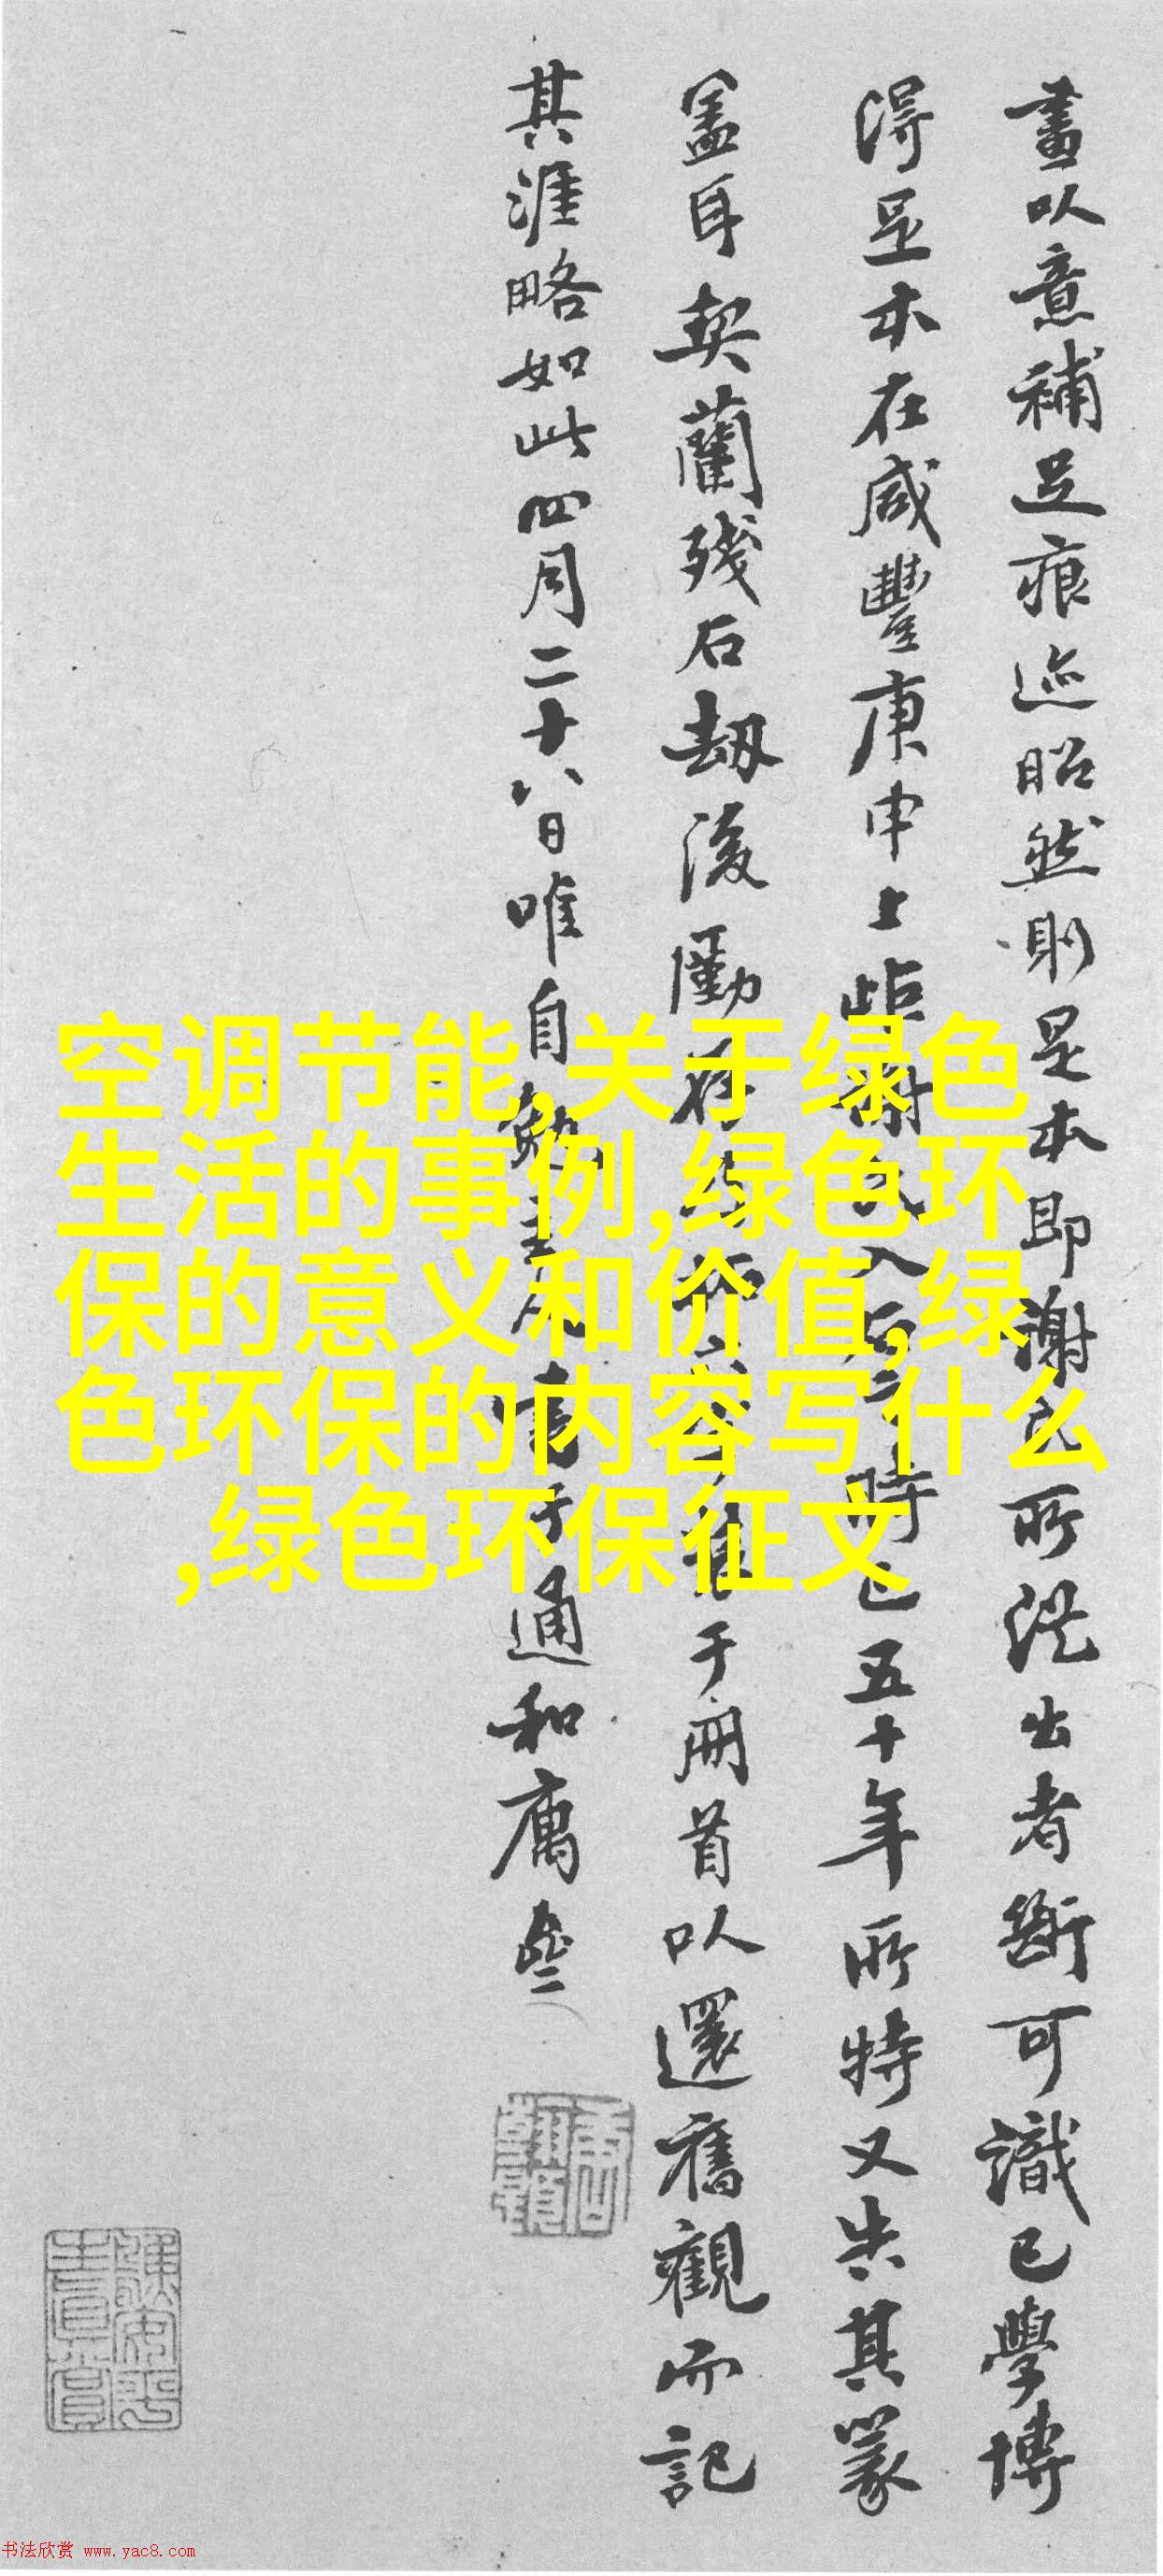 畫以意補足痕迹昭然則是本即謝氏所洗出者斷可識已學博
得足本在咸豐庚申上距謝氏入石時已五十年所特又失其篆
蓋耳契蘭殘石劫後勵存
于冊首以還舊觀而記
其涯略如此四月二十八日唯自勉
通和
空调节能,关于绿色
生活的事例,绿色环
保的意义和价值,绿
色环保的内容写什么
,绿色环保征文
书法欣赏 www.yac8.com